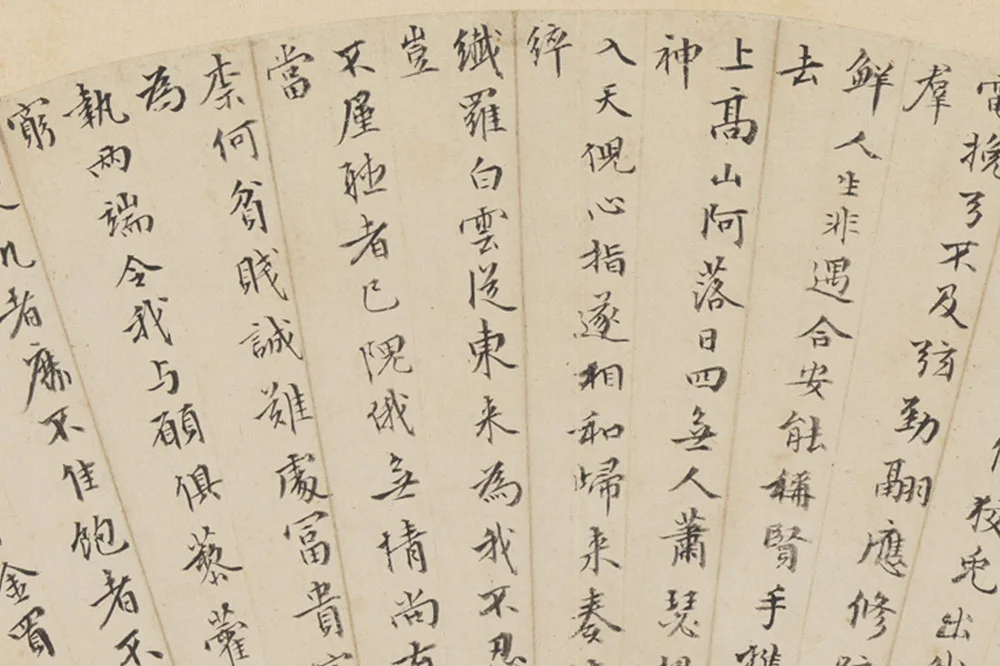 狡兔出
電挽弓不及弦勁翮應修
羣
鮮人生非遇合安能稱賢手
去
上高山阿落日四無人蕭瑟
神
入天倪心指遂相和歸來奏
綷
纖羅白雲從東來為我不忍
豈
不厪聽者已隗俄無情尚有
當
柰何貧賤誠難處富貴
為
執兩端全我与願俱藜藿
窮
者不佳飽者不
金買